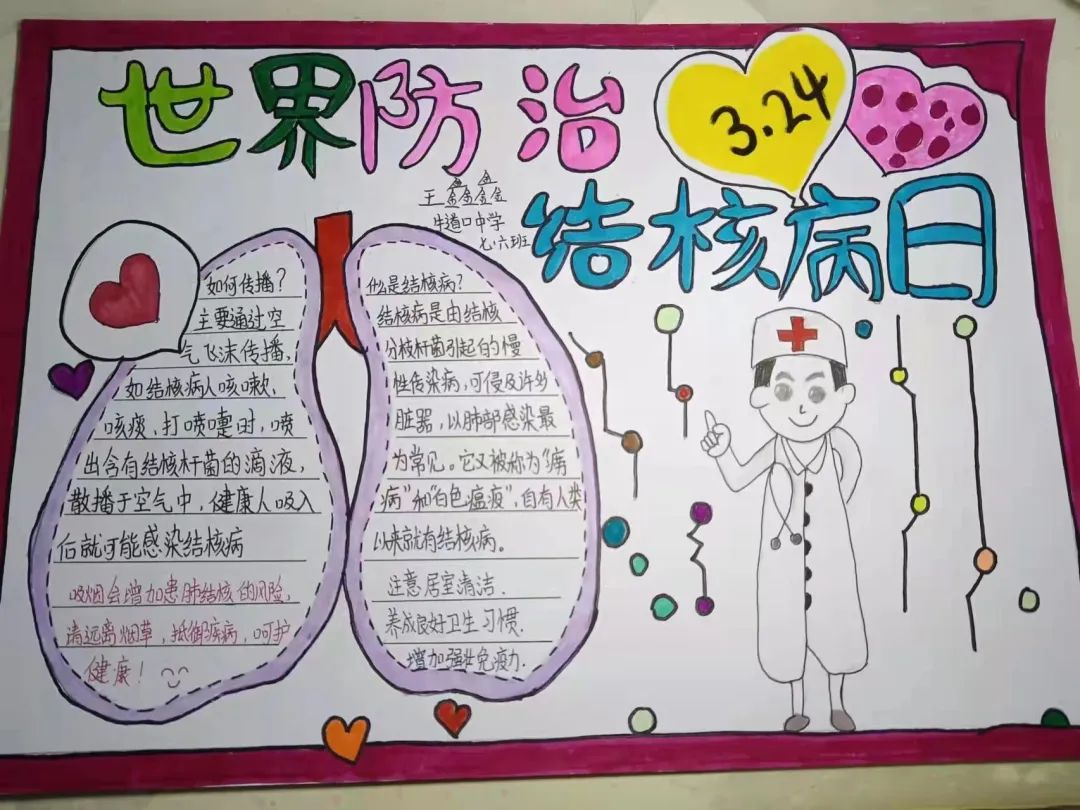 世界防治
3.24
结核病日
王鑫鑫
牛道口中学
七·六班
如何传播？
主要通过空
气飞沫传播，
如结核病人咳嗽、
咳痰、打喷嚏时，喷
出含有结核杆菌的滴液，
散播于空气中，健康人吸入
后就可能感染结核病
吸烟会增加患肺结核的风险，
请远离烟草，抵御疾病，呵护
健康！
什么是结核病？
结核病是由结核
分枝杆菌引起的慢
性传染病，可侵及许多
脏器，以肺部感染最
为常见。它又被称为“痨
病”和“白色瘟疫”，自有人类
以来就有结核病。
注意居室清洁.
养成良好卫生习惯.
增加强壮免疫力.